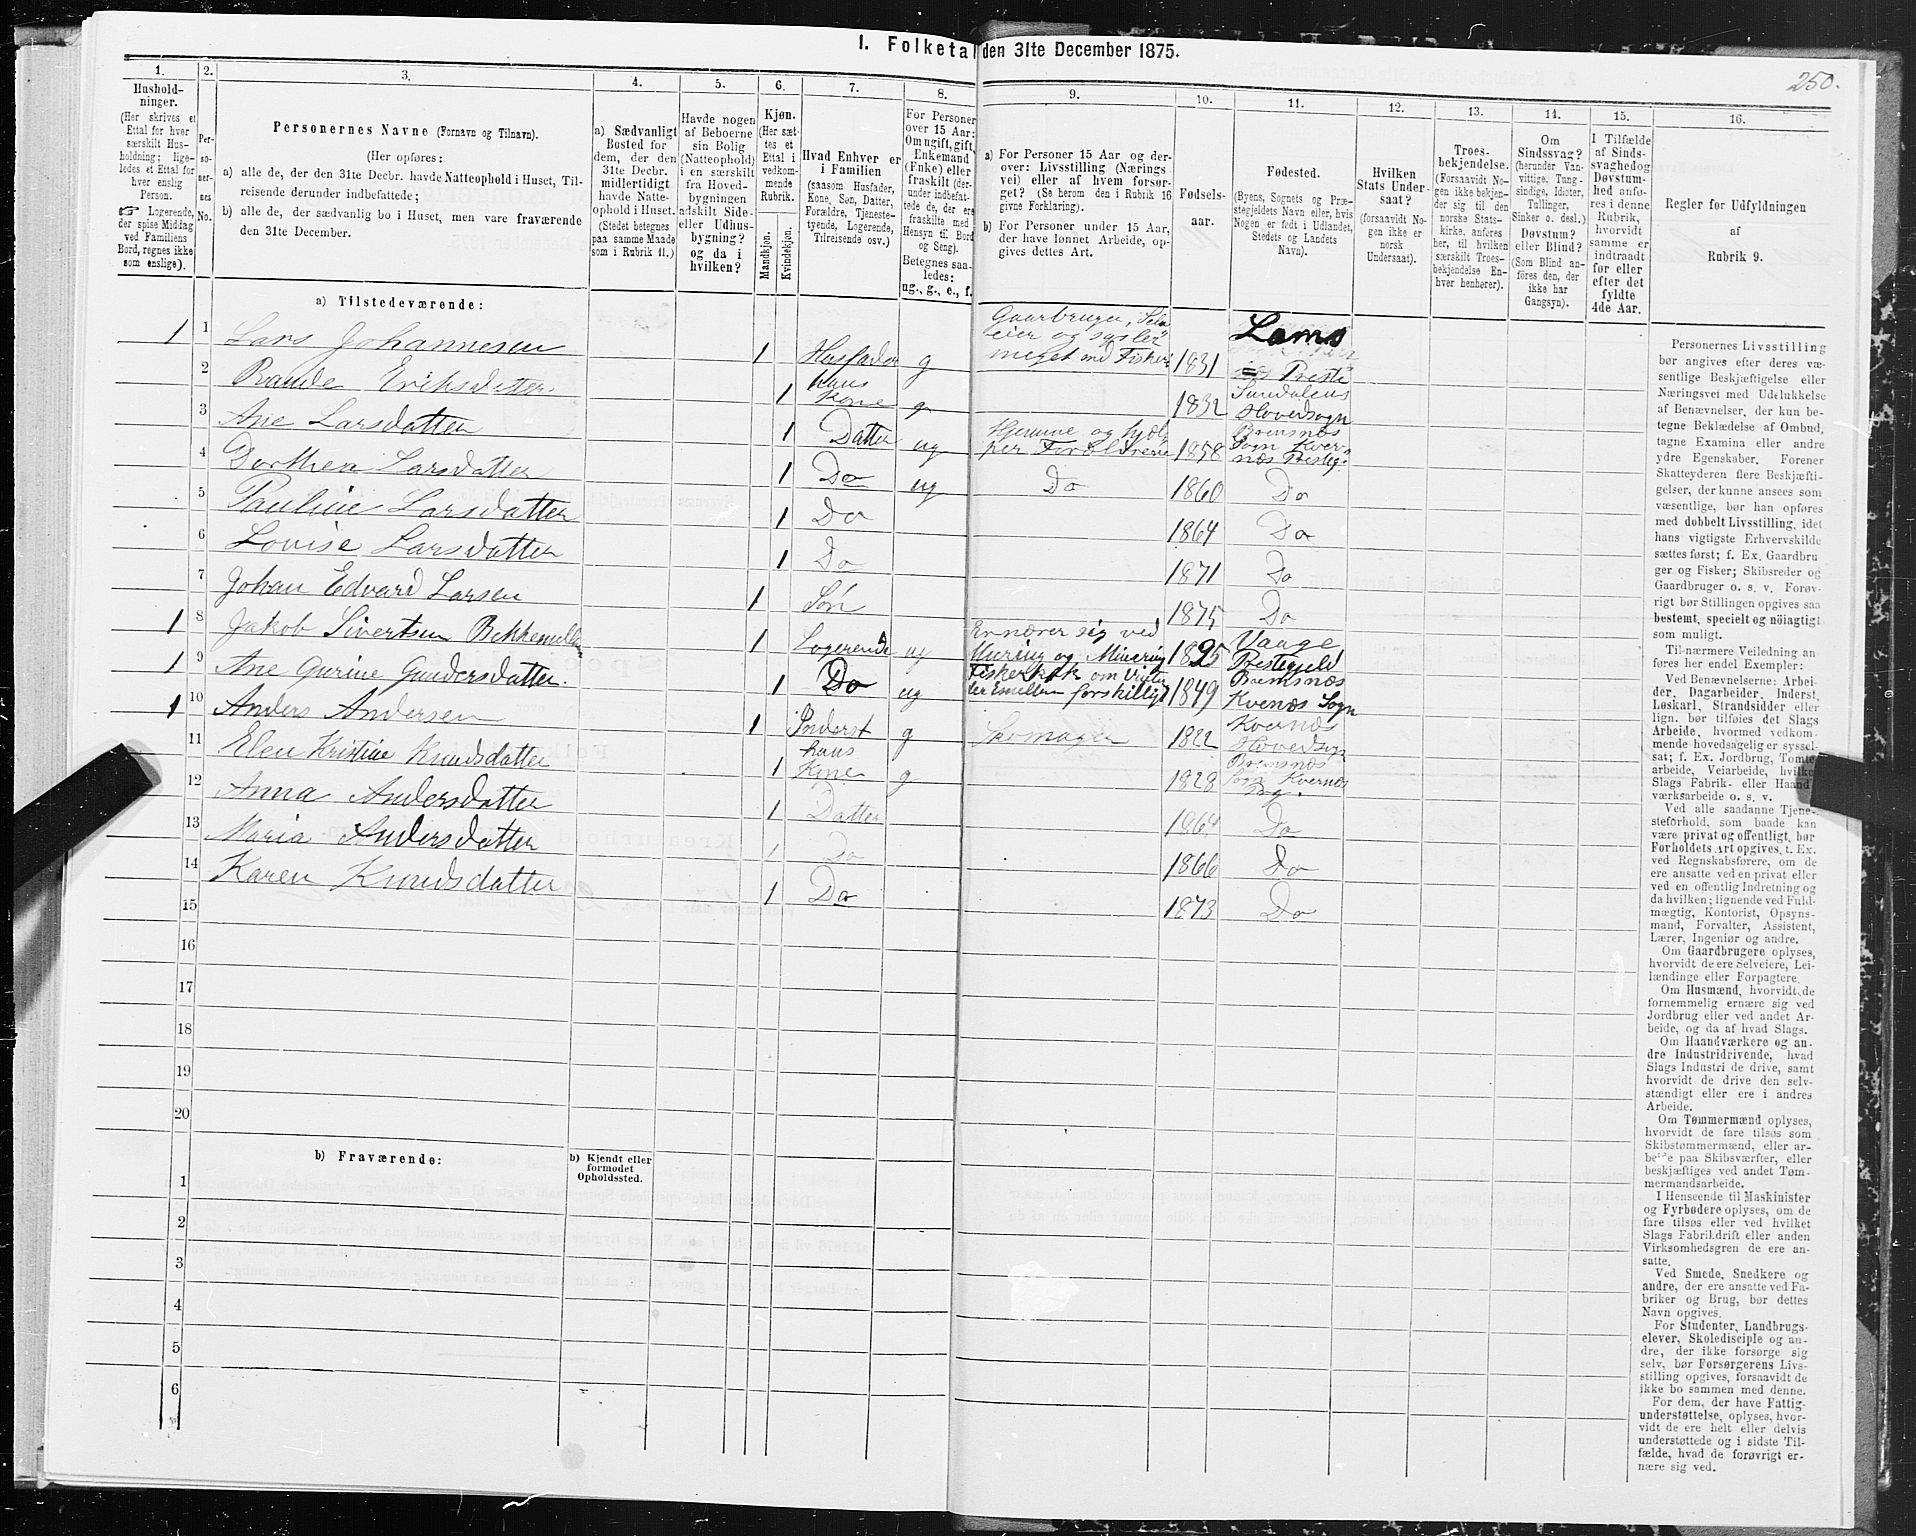 I. Folketal den 31te December 1875.
250.
1.
Husholdninger.
(Her skrives et
Ettal for hver
særskilt Husholdning;
ligeledes et Ettal for
hver enslig
Person.
☞ Logerende,
der spise Middag
ved Familiens
Bord, regnes ikke
som enslige).
2.
Personernes
No.
3.
Personernes Navne (Fornavn og Tilnavn).
(Her opføres:
a) alle de, der den 31te Decbr. havde Natteophold i Huset, Tilreisende
derunder indbefattede;
b) alle de, der sædvanlig bo i Huset, men vare fraværende
den 31te December.
4.
a) Sædvanligt
Bosted for
dem, der den
31te Decbr.
midlertidigt
havde Natteophold
i Huset.
(Stedet betegnes
paa samme Maade
som i Rubrik 11.)
5.
Havde nogen
af Beboerne
sin Bolig
(Natteophold)
i en særskilt
fra Hovedbygningen
adskilt Side-
eller Udhusbygning?
og da i
hvilken?
6.
Kjøn.
(Her sættes
et
Ettal i
vedkommende
Rubrik.
Mandkjøn.
Kvindekjøn.
7.
Hvad Enhver er
i Familien
(saasom Husfader,
Kone, Søn, Datter,
Forældre, Tjenestetyende,
Logerende,
Tilreisende osv.)
8.
For Personer
over 15 Aar:
Om ugift, gift,
Enkemand
(Enke) eller
fraskilt (derunder
indbefattede
de, der ere
fraskilte med
Hensyn til Bord
og Seng).
Betegnes saaledes:
ug., g., e., f.
9.
a) For Personer 15 Aar og derover:
Livsstilling (Næringsvei)
eller af hvem forsørget?
(Se herom den i Rubrik 16
givne Forklaring).
b) For Personer under 15 Aar,
der have lønnet Arbeide, opgives
dettes Art.
10.
Fødselsaar.
11.
Fødested.
(Byens, Sognets og Præstegjeldets
Navn eller, hvis
Nogen er født i Udlandet,
Stedets og Landets
Navn).
12.
Hvilken
Stats Undersaat?
(forsaavidt Nogen
ikke er
norsk
Undersaat).
13.
Troesbekjendelse.
(Forsaavidt Nogen
ikke bekjender
sig til den
norske Statskirke,
anføres
her, til hvilken
særskilt Troesbekjendelse
Enhver
henhører).
14.
Om
Sindssvag?
(herunder Vanvittige,
Tungsindige,
Idioter,
Tullinger,
Sinker o. desl.)
Døvstum?
eller Blind?
(Som Blind anføres
den, der
ikke har
Gangsyn).
15.
I Tilfælde
af Sindssvaghed
og
Døvstumhed
anføres
i denne
Rubrik,
hvorvidt
samme er
indtraadt
før eller
efter det
fyldte
4de Aar.
16.
Regler for Udfyldningen
af
Rubrik 9.
a) Tilstedeværende:
1 1 Lars Johannesen 1 Husfader g Gaarbruger, Sela
eier og sysler
meget md Fiskeri 1831 Lams
næs Preste
2 Rande Eriksdatter 1 hans
Kone g 1832 Sundalens
Hovedsogn
3 Ane Larsdatter 1 Datter ug Hjemme og hjælper
Forældrene 1858 Bremsnæs
Sogn Kvernæs
Prestg.
4 Dorthea Larsdatter 1 Do ug Do 1860 Do
5 Pauline Larsdatter 1 Do 1864 Do
6 Lovise Larsdatter 1 Do 1871 Do
7 Johan Edvard Larsen 1 Søn 1875 Do
1 8 Jakob Sivertsen Bekkemellem 1 Logerende ug Ernærer sig ved
Muring og Minering 1825 Vaage
Prestegjeld
1 9 Ane Gurine Gundersdatter. 1 Do ug Fisker 1849 Bremsnæs
Kvenæs Sogn
1 10 Anders Andersen 1 Inderst g Skomager 1822 Kvernæs
Hovedsogn
11 Elen Kristine Knudsdatter 1 hans
Kone g 1828 Bremsnæs
Sogn Kvernæs
Pg.
12 Anna Andersdatter 1 Datter 1864 Do
13 Maria Andersdatter 1 Do 1866 Do
14 Karen Knudsdatter 1 Do 1873 Do
15
16
17
18
19
20
b) Fraværende:
b) Kjendt eller
formodet
Opholdssted.
1
2
3
4
5
6
Personernes Livsstilling
bør angives efter deres væsentlige
Beskjæftigelse eller
Næringsvei med Udelukkelse
af Benævnelser, der kun betegne
Beklædelse af Ombud,
tagne Examina eller andre
ydre Egenskaber. Forener
Skatteyderen flere Beskjæftigelser,
der kunne ansees som
væsentlige, bør han opføres
med dobbelt Livsstilling, idet
hans vigtigste Erhvervskilde
sættes først; f. Ex. Gaardbruger
og Fisker; Skibsreder og
Gaardbruger o. s. v. Forøvrigt
bør Stillingen opgives saa
bestemt, specielt og nøiagtigt
som muligt.
Til nærmere Veiledning anføres
her endel Exempler:
Ved Benævnelserne: Arbeider,
Dagarbeider, Inderst,
Løskarl, Strandsidder eller
lign. bør tilføies det Slags
Arbeide, hvormed vedkommende
hovedsagelig er sysselsat;
f. Ex. Jordbrug, Tomtearbeide,
Veiarbeide, hvilket
Slags Fabrik- eller Haandværksarbeide
o. s. v.
Ved alle saadanne Tjenesteforhold,
som baade kan
være privat og offentligt, bør
Forholdets Art opgives, t. Ex.
ved Regnskabsførere, om de
ere ansatte ved en privat eller
ved en offentlig Indretning og
da hvilken; lignende ved Fuldmægtig,
Kontorist, Opsynsmand,
Forvalter, Assistent,
Lærer, Ingeniør og andre.
Om Gaardbrugere oplyses,
hvorvidt de ere Selveiere, Leilændinge
eller Forpagtere.
Om Husmænd, hvorvidt de
fornemmelig ernære sig ved
Jordbrug eller ved andet Arbeide,
og da af hvad Slags.
Om Haandværkere og andre
Industridrivende, hvad
Slags Industri de drive, samt
hvorvidt de drive den selvstændigt
eller ere i andres
Arbeide.
Om Tømmermænd oplyses,
hvorvidt de fare tilsøs som
Skibstømmermænd, eller arbeide
paa Skibsværfter, eller
beskjæftiges ved andet Tømmermandsarbeide.
I Henseende til Maskinister
og Fyrbødere oplyses, om de
fare tilsøs eller ved hvilket
Slags Fabrikdrift eller anden
Virksomhedsgren de ere ansatte.
Ved Smede, Snedkere og
andre, der ere ansatte ved Fabriker
og Brug, bør dettes
Navn opgives.
For Studenter, Landbrugselever,
Skoledisciple og andre,
der ikke forsørge sig
selv, bør Forsørgerens Livsstilling
opgives, forsaavidt de
ikke bo sammen med denne.
For dem, der have Fattigunderstøttelse,
oplyses, hvorvidt
de ere helt eller delvis
understøttede og i sidste Tilfælde,
hvad de forøvrigt ernære
sig ved.